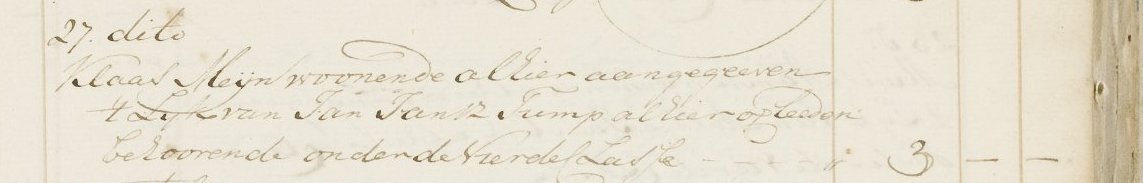 27. dito
Klaas Meijn woonende alhier aangegeeven
't Lijk van Jan Jansz Tump alhier overleeden
behoorende onder de Vierde Classe - " 3 — —